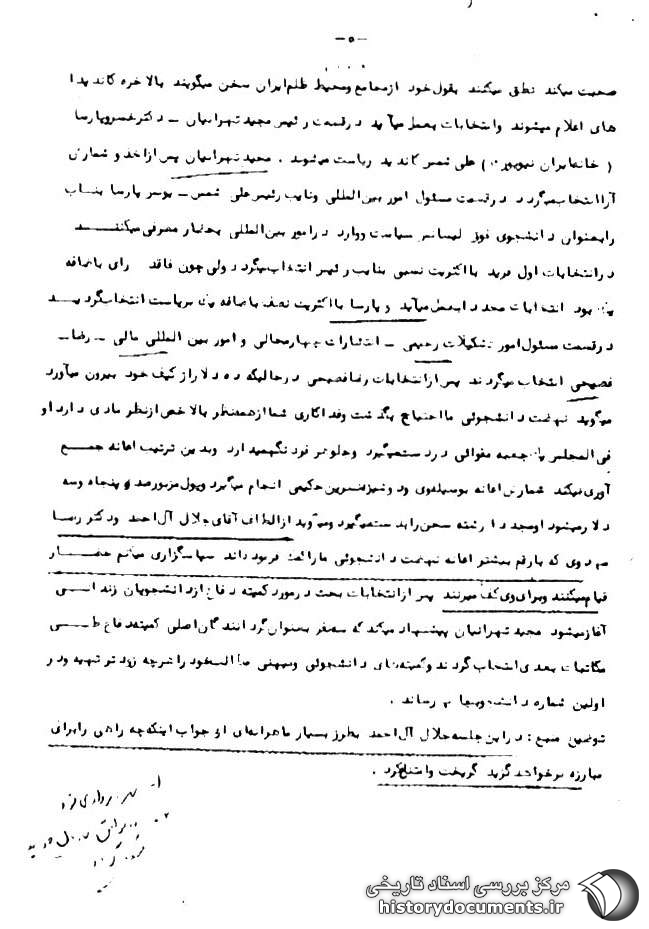 -۵-
صحبت میکند نطق میکنند بقول خود از مجامع ومحیط ظلم ایران سخن میگویند بالاخره کاندیدا
های اعلام میشوند وانتخابات بعمل میآید در قسمت رئیس مجید تهرانیان - دکتر خسرو پارسا
( خانه ایران نیویورک ) علی شمس کاندید ریاست میشوند . مجید تهرانیان پس از اخذ و شمارش
آرا انتخاب میگردد در قسمت مسئول امور بین المللی ونایب رئیس علی شمس - یوسر پارسا بناب
رابعنوان دانشجوی فوق لیسانس سیاست ووارد در امور بین المللی معرفی میکنند
در انتخابات اول فرید با اکثریت نسبی بنایب رئیس انتخاب میگردد ولی چون فاقد رای باضافه
یک بود انتخابات مجدد بعمل میآید و پارسا با اکثریت نصف باضافه یک بریاست انتخاب گردید
در قسمت مسئول امور تشکیلات رحیمی - انتشارات چهارمحالی و امور بین المللی مالی - رضا -
فصیحی انتخاب میگردند پس از انتخابات رضا فصیحی در حالیکه ده دلار از کیف خود بیرون میآورد
میگوید نهضت دانشجوئی ما احتیاج بگذشت وفداکاری شما از همه نظر بالاخص از نظر مادی دارد او
فی المجلس یک جعبه مقوائی در دست میگیرد وجلو هر فرد نگهمیدارد وبدین ترتیب اعانه جمع
آوری میکند شمارش اعانه بوسیله وی ودوشیزه نسرین حکیمی انجام میگیرد وپول مزبور صد و پنجاه وسه
دلار میشود او مجددا رشته سخن رابدست میگیرد ومیگوید از الطاف آقای جلال آل احمد ودکتر رسا
که بارقم بیشتر اعانه نهضت دانشجوئی مارا فرموداند سپاسگزاری میکنم حضار
قیام میکنند وبرای وی کف میزنند پس از انتخابات بحث در مورد کمیته دفاع از دانشجویان زندانی
آغاز میشود مجید تهرانیان پیشنهاد میکند که سه نفر بعنوان گردانندگان اصلی کمیته دفاع طی
مکاتبات بعدی انتخاب گردند وکمیته های دانشجوئی ومیهنی را هرچه زودتر تهیه ودر
اولین شماره دانشجو بچاپ برساند .
توضیح منبع : در این جلسه جلال آل احمد بطرز بسیار ماهرانه ای از جواب اینکه چه راهی رابرای
مبارزه برخواهند گزید گریخت وامتناع کرد .
مرکز بررسی اسناد تاریخی
historydocuments.ir